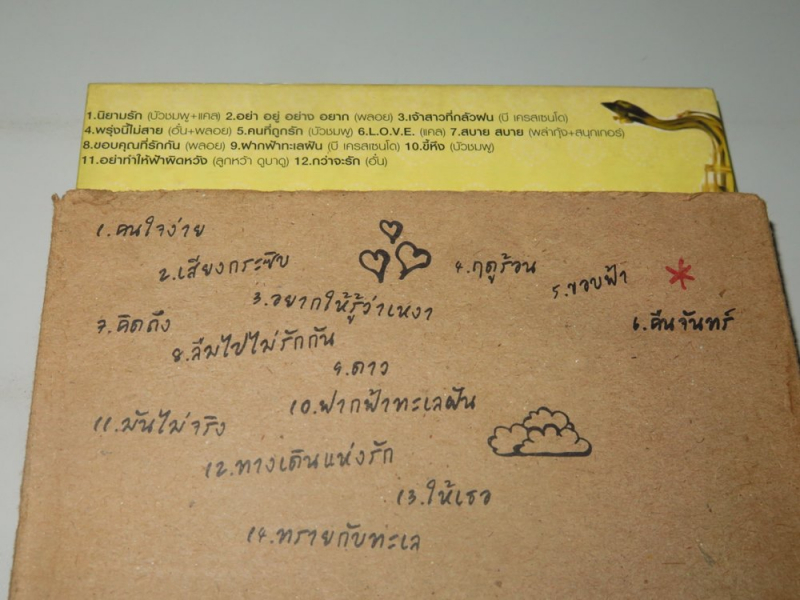 1.นิยามรัก (บัวชมพู+แคล) 2.อย่า อยู่ อย่าง อยาก (พลอย) 3.เจ้าสาวที่กลัวฝน (บี เครสเซนโด)
4.พรุ่งนี้ไม่สาย (อั๋น+พลอย) 5.คนที่ถูกรัก (บัวชมพู) 6.L.O.V.E. (แคล) 7.สบาย สบาย (พล่ากุ้ง+สนุกเกอร์)
8.ขอบคุณที่รักกัน (พลอย) 9.ฝากฟ้าทะเลฝัน (บี เครสเซนโด) 10.ขี้หึง (บัวชมพู)
11.อย่าทำให้ฟ้าผิดหวัง (ลูกหว้า ดูบาดู) 12.กว่าจะรัก (อั๋น)
1.คนใจง่าย
2.เสียงกระซิบ
4.ฤดูร้อน
5.ขอบฟ้า
3.อยากให้รู้ว่าเหงา
6.คืนจันทร์
7.คิดถึง
8.ลืมไปไม่รักกัน
9.ดาว
10.ฟากฟ้าทะเลฝัน
11.มันไม่จริง
12.ทางเดินแห่งรัก
13.ให้เธอ
14.ทรายกับทะเล